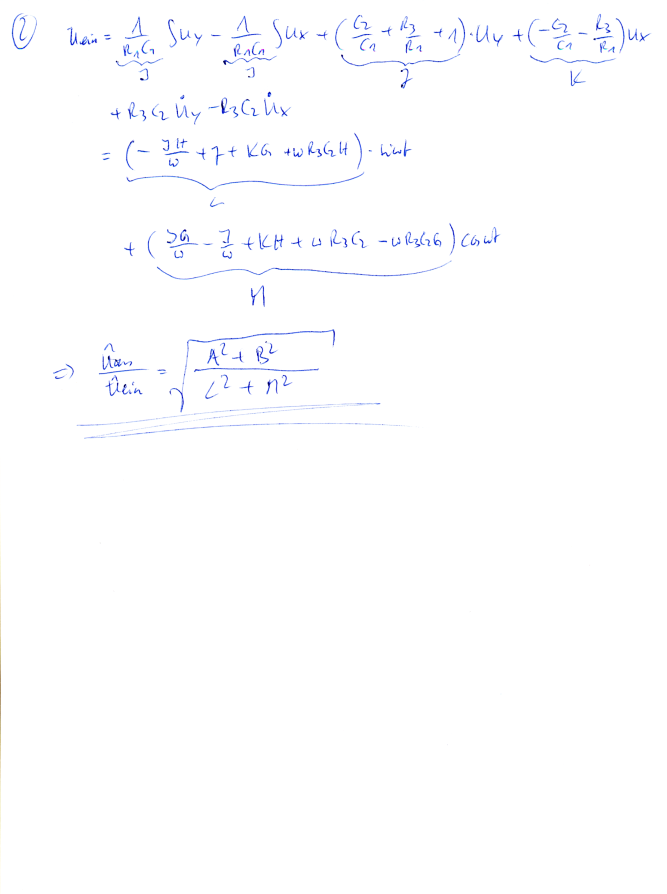 ② uein = 1/(R1C1) ∫uy - 1/(R1C1) ∫ux + (C2/C1 + R3/R1 + 1)·uy + (-C2/C1 - R3/R1)ux
I I J K
+ R3C2 u̇y - R3C2 u̇x
= (- IH/ω + J + KG + ωR3C2H) · sinωt
L
+ (IG/ω - I/ω + KH + ωR3C2 - ωR3C2G) cosωt
M
=> ûaus/ûein = √((A² + B²)/(L² + M²))